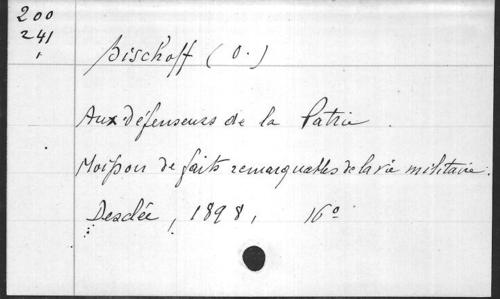 200
241
Bischoff (O.)
Aux Défenseurs de la Patrie.
Moisson de faits remarquables de la vie militaire.
Desclée, 1898, 16°